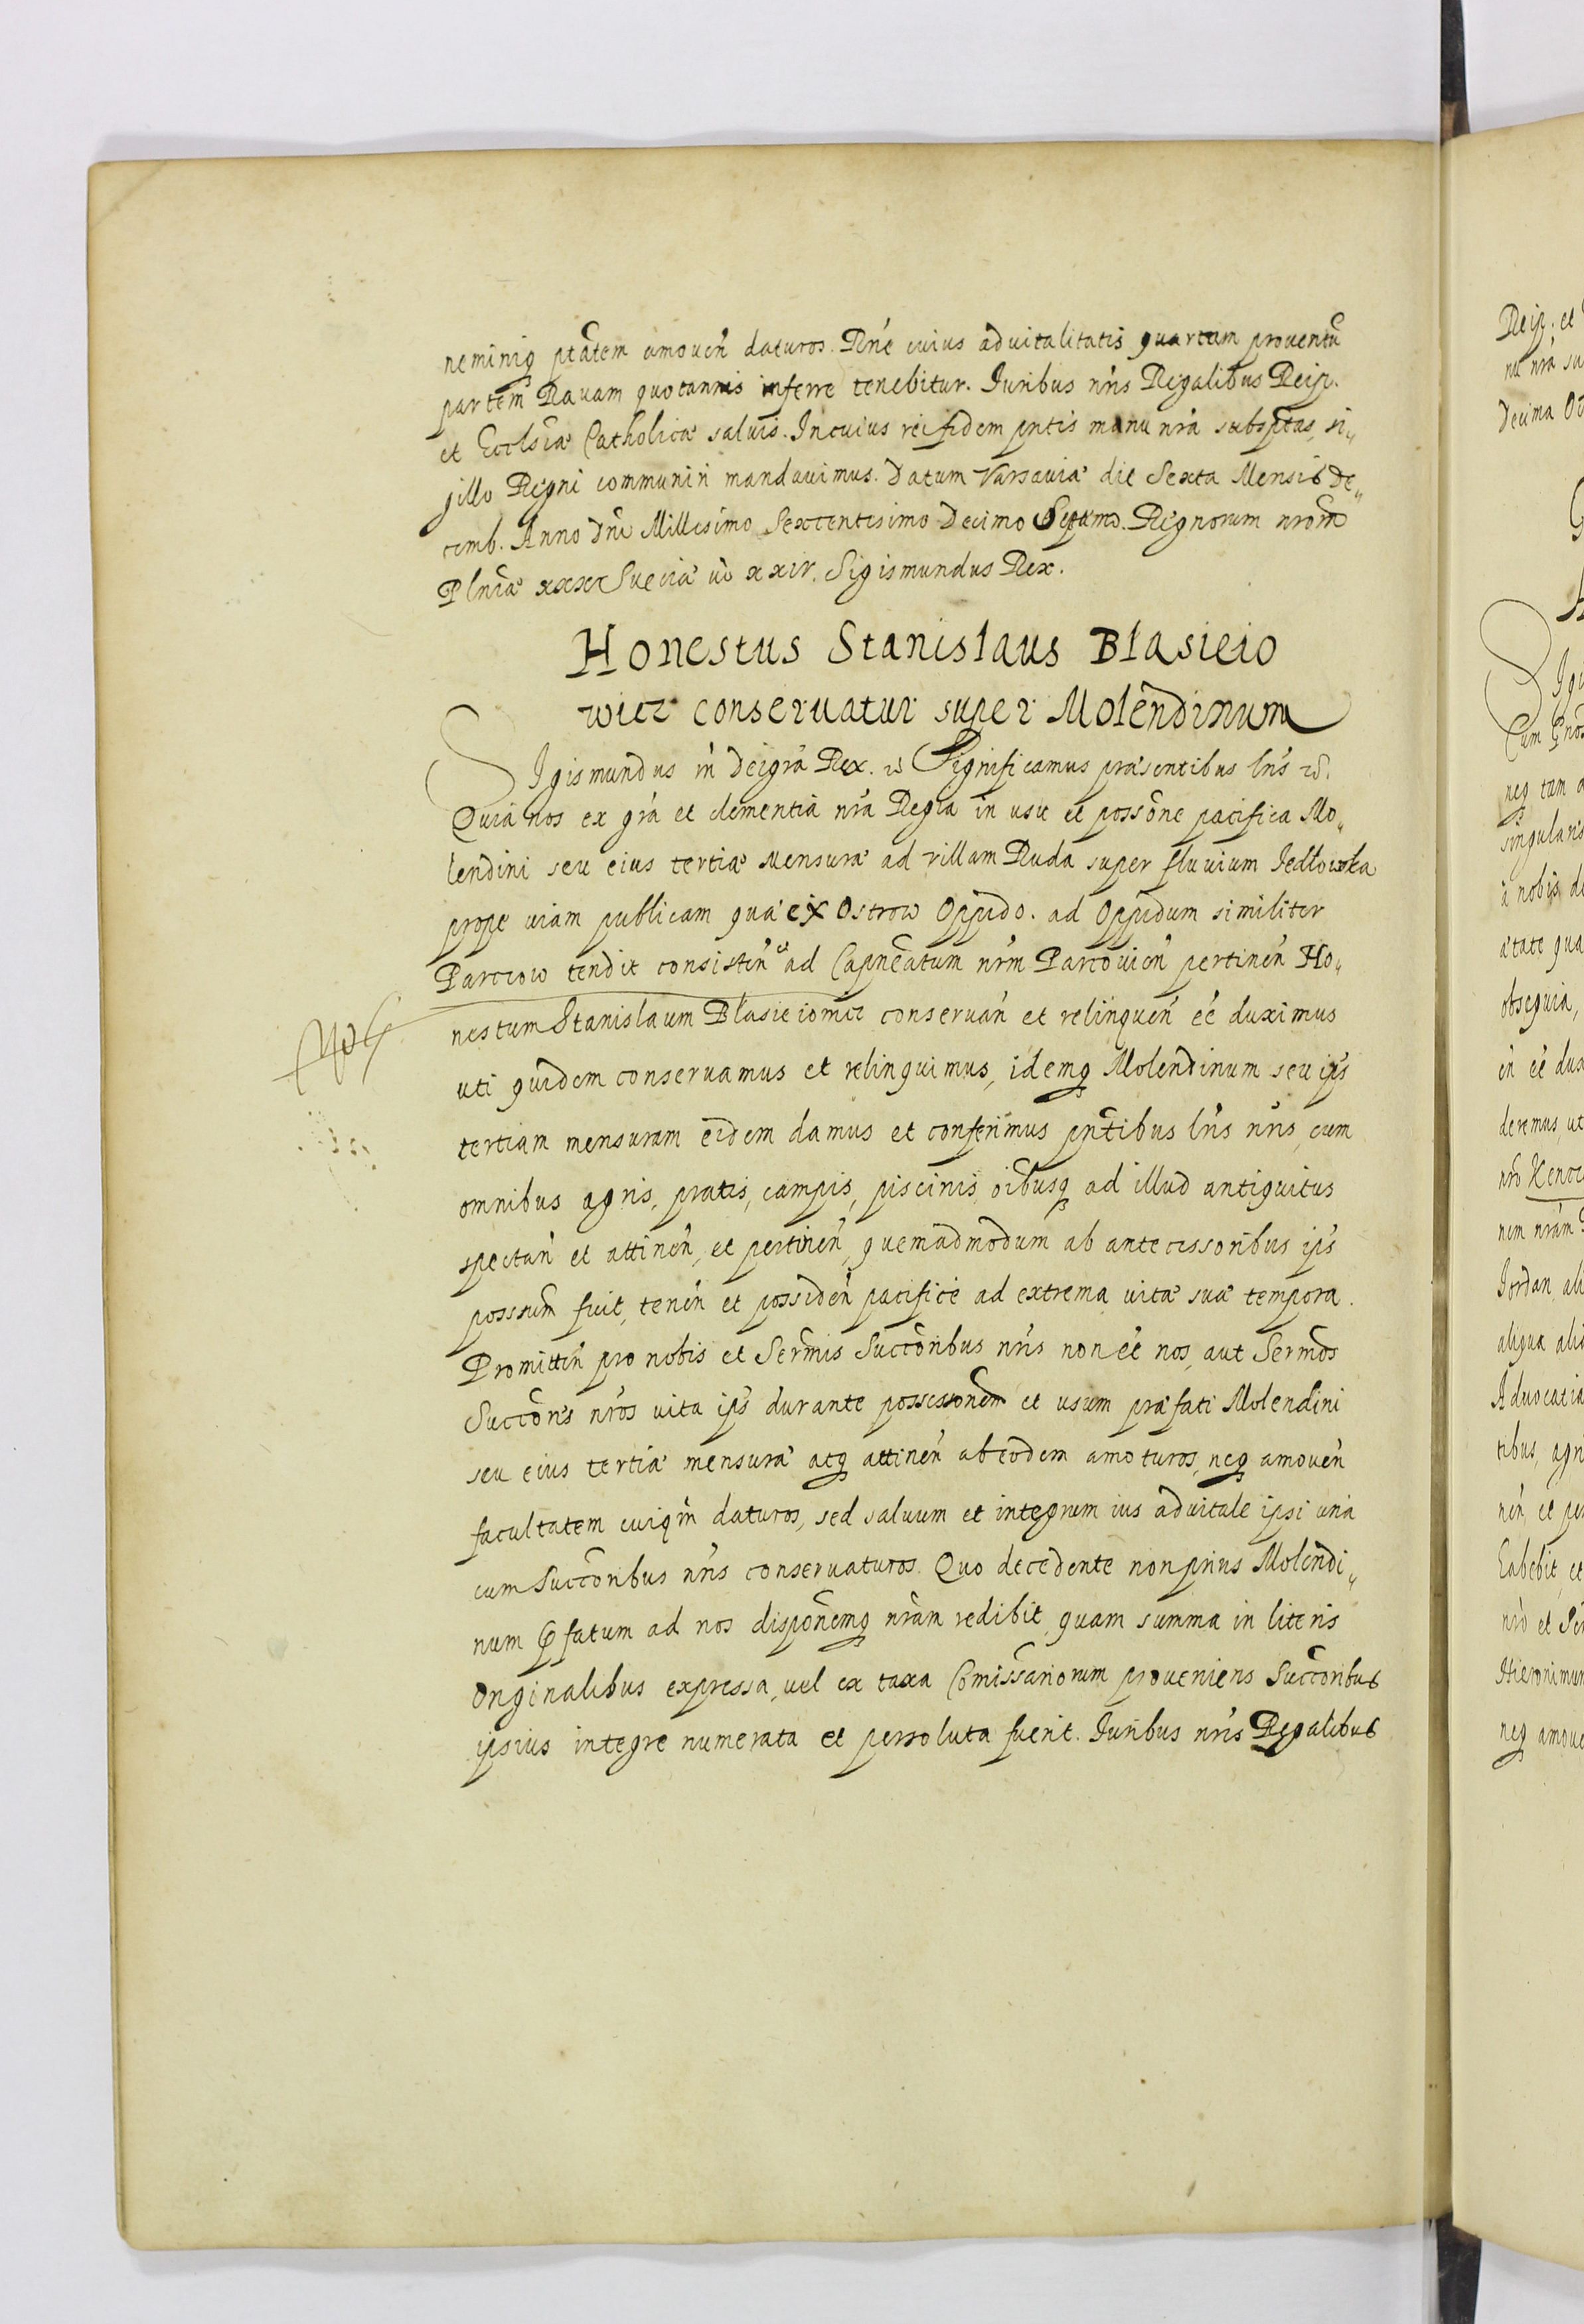 neminiq ptãtem amoueñ daturos. Rñe cuius aduitalitatis quartam prouentũ
partem Rauam quotannis inferre tenebitur. Iuribus nr̃is Regalibus Reip.
et Ecclsiæ Catholicæ saluis. In cuius rei fidem pñtis manu nrã subsptas, si„
gillo Regni communiri mandauimus. Datum Varsauiæ die Sexta Mensis De„
cemb. Anno Dñi Millesimo Sexcentesimo Decimo Septimo. Regnorum nrõm
Plniæ xxx Sueciæ uò xxiv. Sigismundus Rex.
Honestus Stanislaus Blasieio
wicz conseruatur super Molendinum
SIgismundus iii Dei grã Rex. Significamus præsentibus lr̃is
Quia nos ex grã et clementia nrã Regia in usu et possõne pacifica Mo„
lendini seu eius tertiæ Mensuræ ad villam Ruda super fluuium Jedłowka
prope uiam publicam quæ ex Ostrow Oppido. ad Oppidum similiter
Parczow tendit consisteñ et ad Capneatum nrm̃ Parcouieñ pertineñ Ho„
nestum Stanislaum Blasieiowicz conseruañ et relinqueñ eẽ duximus
uti quidem conseruamus et relinquimus, idemq Molendinum seu ips̃
tertiam mensuram eidem damus et conferimus pñtibus lr̃is nr̃is, cum
omnibus agris, pratis, campis, piscinis, oĩbusq ad illud antiquitus
spectañ et attineñ, et pertineñ, quemadmodum ab antecessoribus ips̃
possum̃ fuit, teneñ et possideñ pacifice ad extrema uitæ suæ tempora.
Promitteñ pro nobis et Serm̃is Succõribus nr̃is non eẽ nos, aut Serm̃os
Succõres nrõs uita ips̃ durante possessionem et usum præfati Molendini
seu eius tertiæ mensuræ atq attineñ ab eodem amoturos, neq amoueñ
facultatem cuiqm̃ daturos, sed saluum et integrum ius aduitale ipsi una
cum Succõribus nr̃is conseruaturos. Quo decedente non prius Molendi„
num pfatum ad nos dispõnemq nrãm redibit, quam summa in literis
Originalibus expressa, uel ex taxa Comissariorum proueniens Succõribus
ipsius integre numerata et persoluta fuerit. Iuribus nr̃is Regalibus